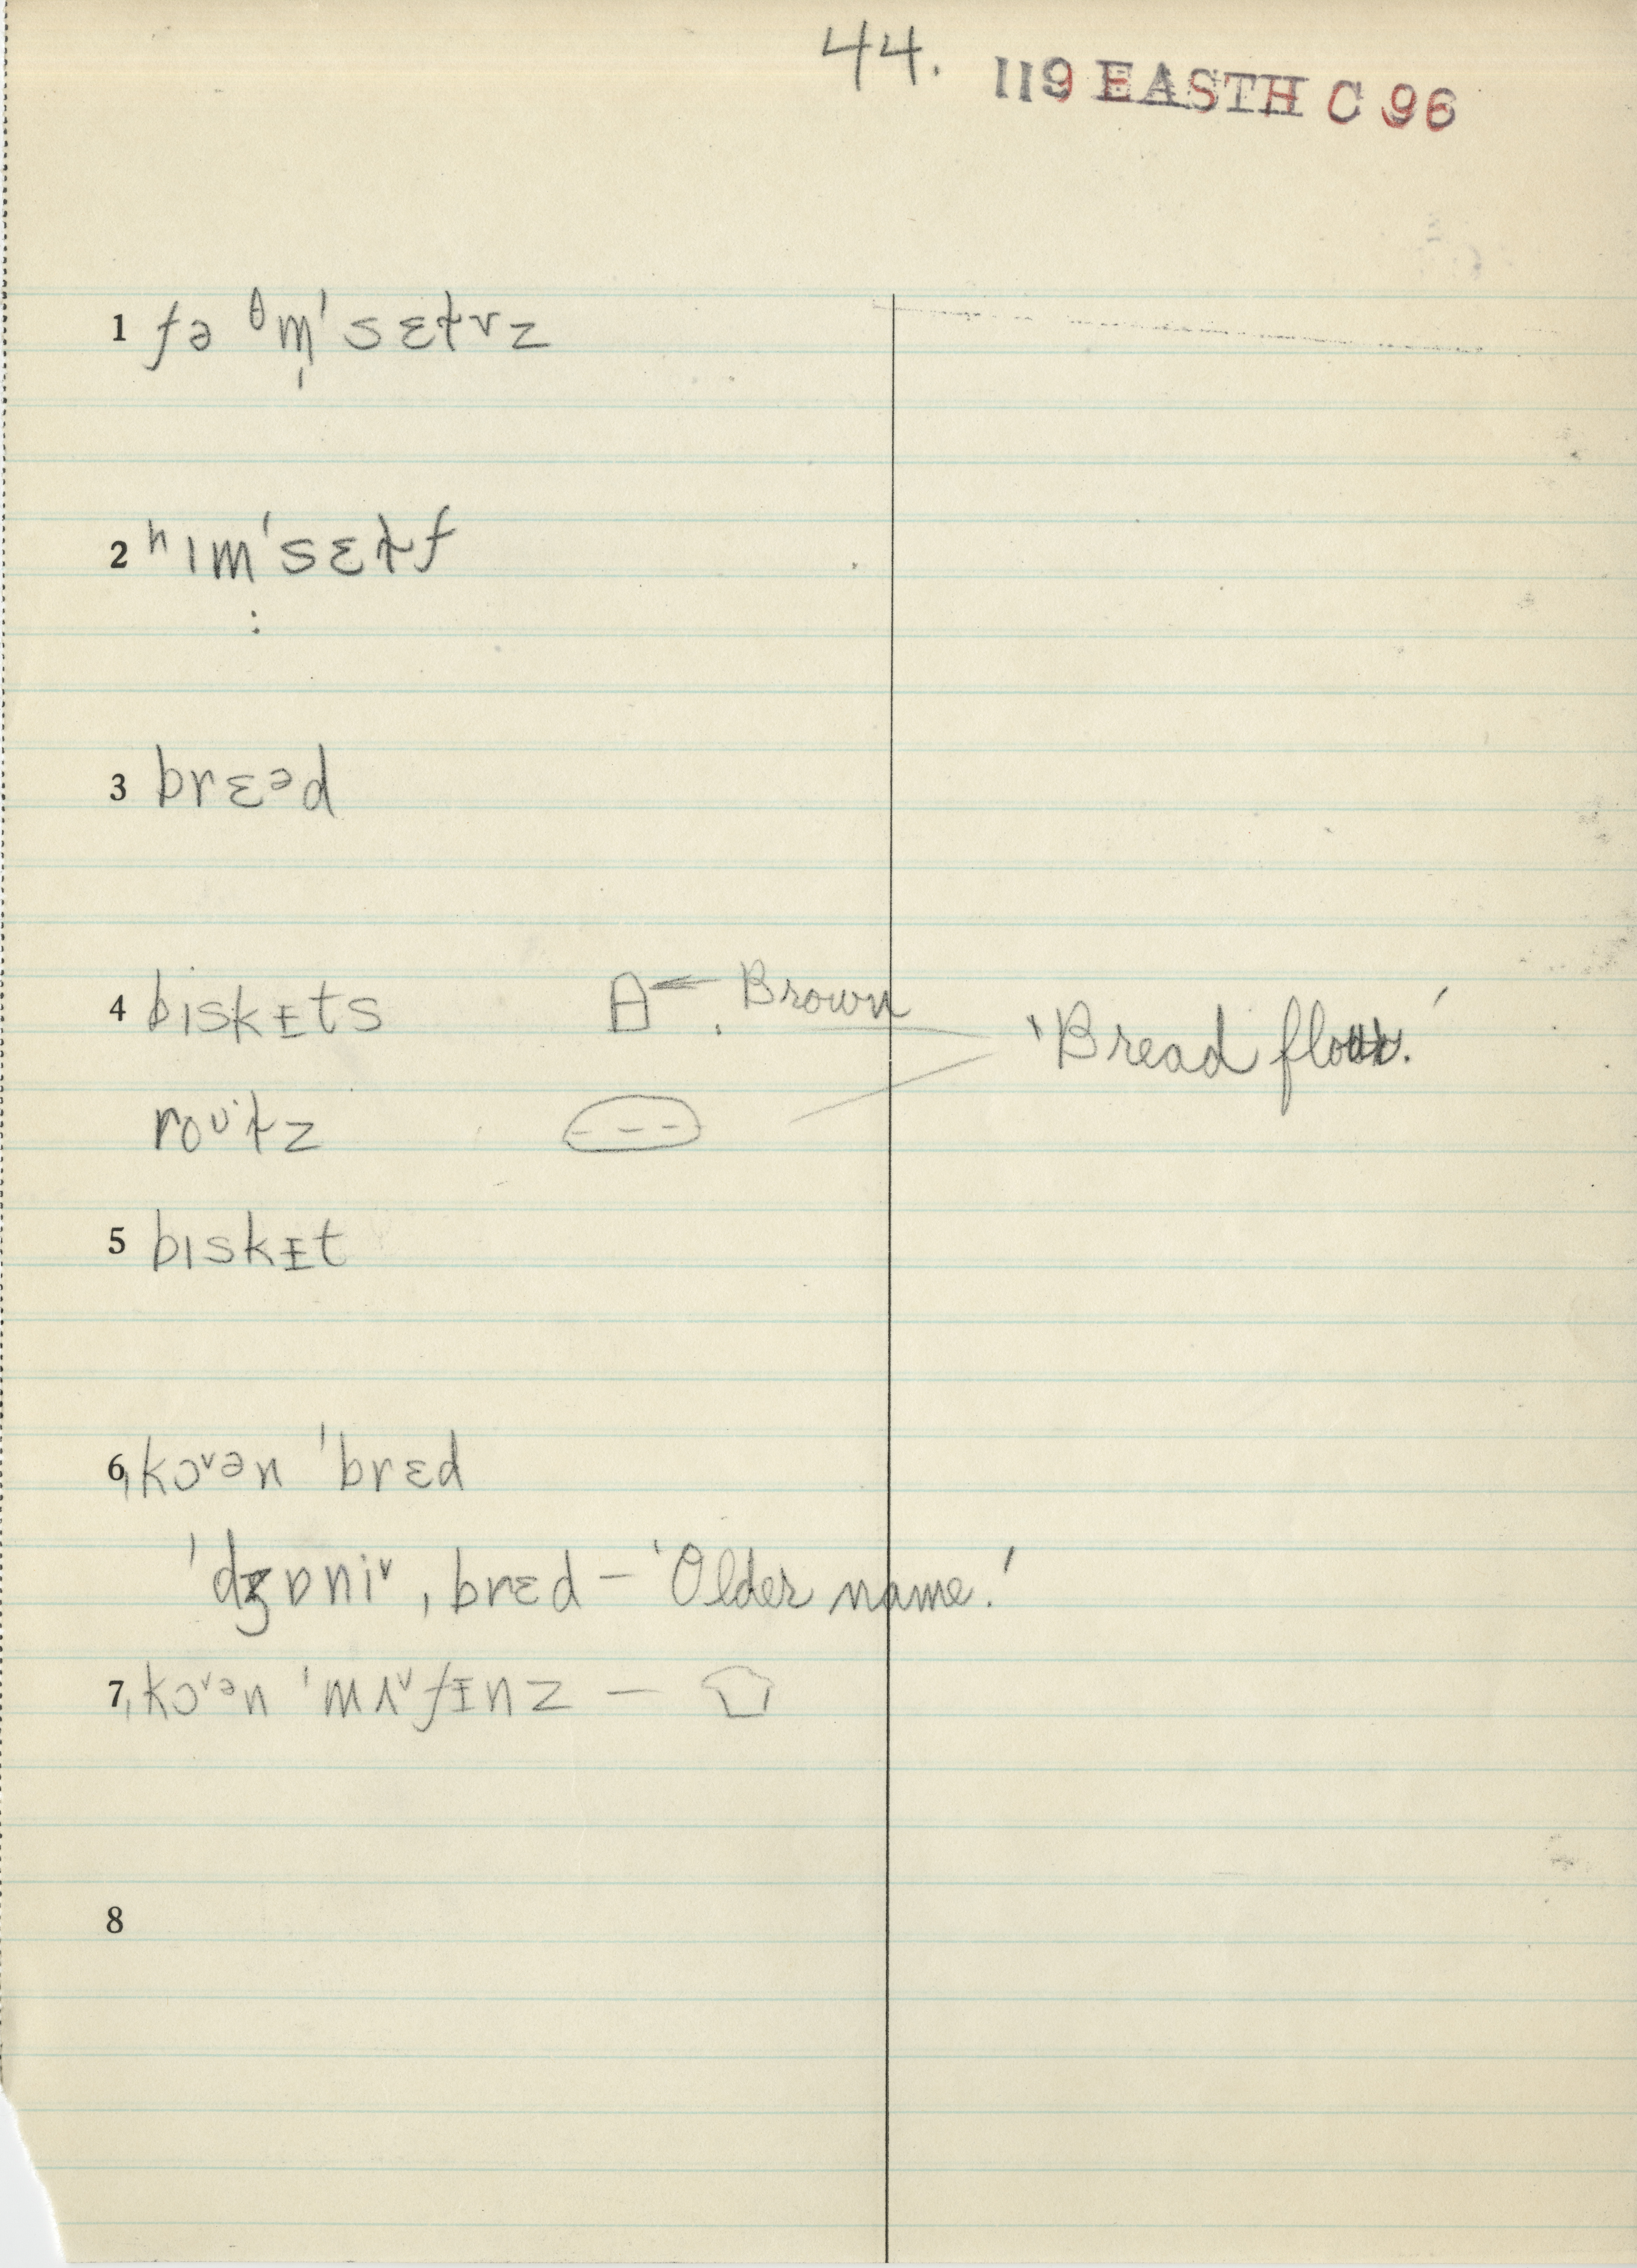 44. 119 EASTH C 96
1 fə ᶿm̩ˈsɛɫvz
2 ʰɪmˈsɛɫf
:
3 brɛᵊd
4 bɪskᵻts Brown
'Bread flour.'
roᶷɫz
5 bɪskᵻt
6 ˌkɔ˅ən ˈbrɛd
ˈdʒɒni˅ ˌbrɛd – 'Older name.'
7 ˌkɔ˅ᵊn ˈmʌ˅fᵻnz –
8